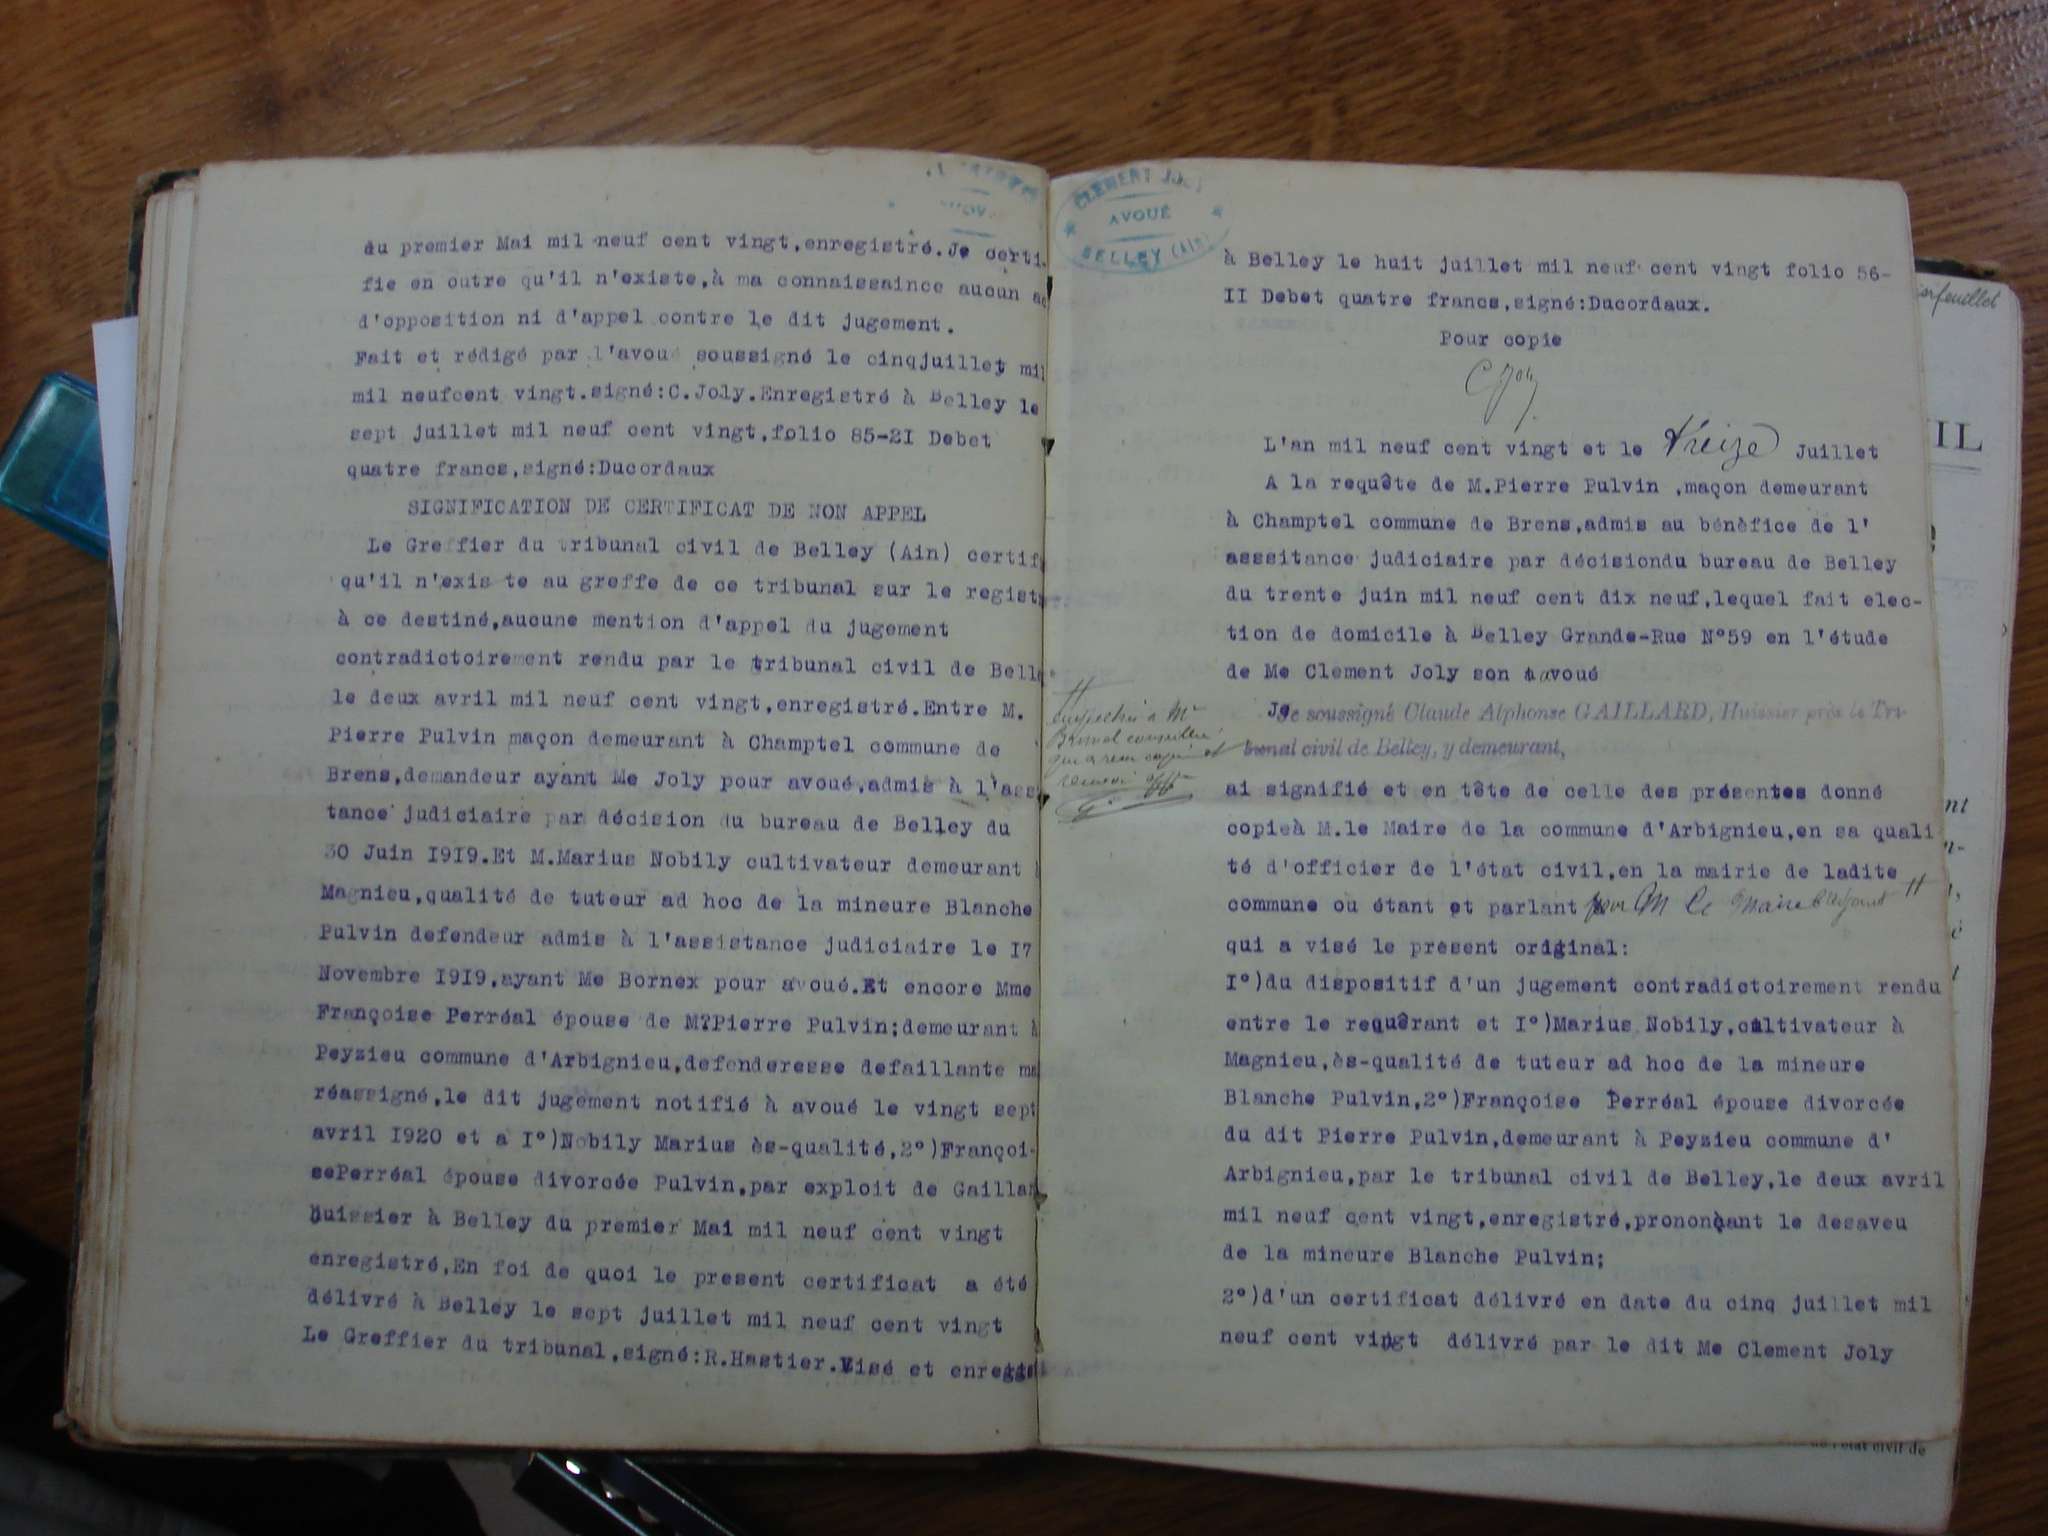 du premier Mai mil neuf cent vingt,enregistré.Je certi-
fie en outre qu'il n'existe,à ma connaissaince aucun
d'opposition ni d'appel contre le dit jugement.
Fait et rédigé par l'avoué soussigné le cinqjuillet mil
mil neufcent vingt.signé:C.Joly.Enregistré à Belley le
sept juillet mil neuf cent vingt,folio 85-2I Debet
quatre francs,signé:Ducordaux
SIGNIFICATION DE CERTIFICAT DE NON APPEL
Le Greffier du tribunal civil de Belley (Ain) certif
qu'il n'exis te au greffe de ce tribunal sur le regist
à ce destiné,aucune mention d'appel du jugement
contradictoirement rendu par le tribunal civil de Belle
le deux avril mil neuf cent vingt,enregistré.Entre M.
Pierre Pulvin maçon demeurant à Champtel commune de
Brens,demandeur ayant Me Joly pour avoué,admis à l'ass
tance judiciaire par décision du bureau de Belley du
30 Juin I9I9.Et M.Marius Nobily cultivateur demeurant
Magnieu,qualité de tuteur ad hoc de la mineure Blanche
Pulvin defendeur admis à l'assistance judiciaire le I7
Novembre I9I9,ayant Me Bornex pour avoué.Et encore Mme
Françoise Perréal épouse de M?Pierre Pulvin;demeurant à
Peyzieu commune d'Arbignieu,defenderesse defaillante
réassigné,le dit jugement notifié à avoué le vingt sept
avril I920 et a I°)Nobily Marius ès-qualité,2°)Françoi-
sePerréal épouse divorcée Pulvin,par exploit de Gailla
huissier à Belley du premier Mai mil neuf cent vingt
enregistré,En foi de quoi le present certificat a été
délivré à Belley le sept juillet mil neuf cent vingt
Le Greffier du tribunal,signé:R.Hastier.Visé et
CLEMENT JOLY
AVOUÉ
BELLEY (AIN)
à Belley le huit juillet mil neuf cent vingt folio 56-
II Debet quatre francs,signé:Ducordaux.
Pour copie
C Joly
L'an mil neuf cent vingt et le treize Juillet
A la requête de M.Pierre Pulvin ,maçon demeurant
à Champtel commune de Brens,admis au bénèfice de l'
asssitance judiciaire par décisiondu bureau de Belley
du trente juin mil neuf cent dix neuf,lequel fait elec-
tion de domicile à Belley Grande-Rue N°59 en l'étude
de Me Clement Joly son avoué
Je soussigné Claude Alphonse GAILLARD, Huissier près le Tri-
bunal civil de Belley, y demeurant,
ai signifié et en tête de celle des présentes donné
copieà M.le Maire de la commune d'Arbignieu,en sa quali
té d'officier de l'état civil,en la mairie de ladite
commune où étant et parlant pour M le Maire
qui a visé le present original:
I°)du dispositif d'un jugement contradictoirement rendu
entre le requêrant et I°)Marius Nobily,cultivateur à
Magnieu,ès-qualité de tuteur ad hoc de la mineure
Blanche Pulvin,2°)Françoise Perréal épouse divorcée
du dit Pierre Pulvin,demeurant à Peyzieu commune d'
Arbignieu,par le tribunal civil de Belley,le deux avril
mil neuf cent vingt,enregistré,prononçant le desaveu
de la mineure Blanche Pulvin;
2°)d'un certificat délivré en date du cinq juillet mil
neuf cent vingt délivré par le dit Me Clement Joly